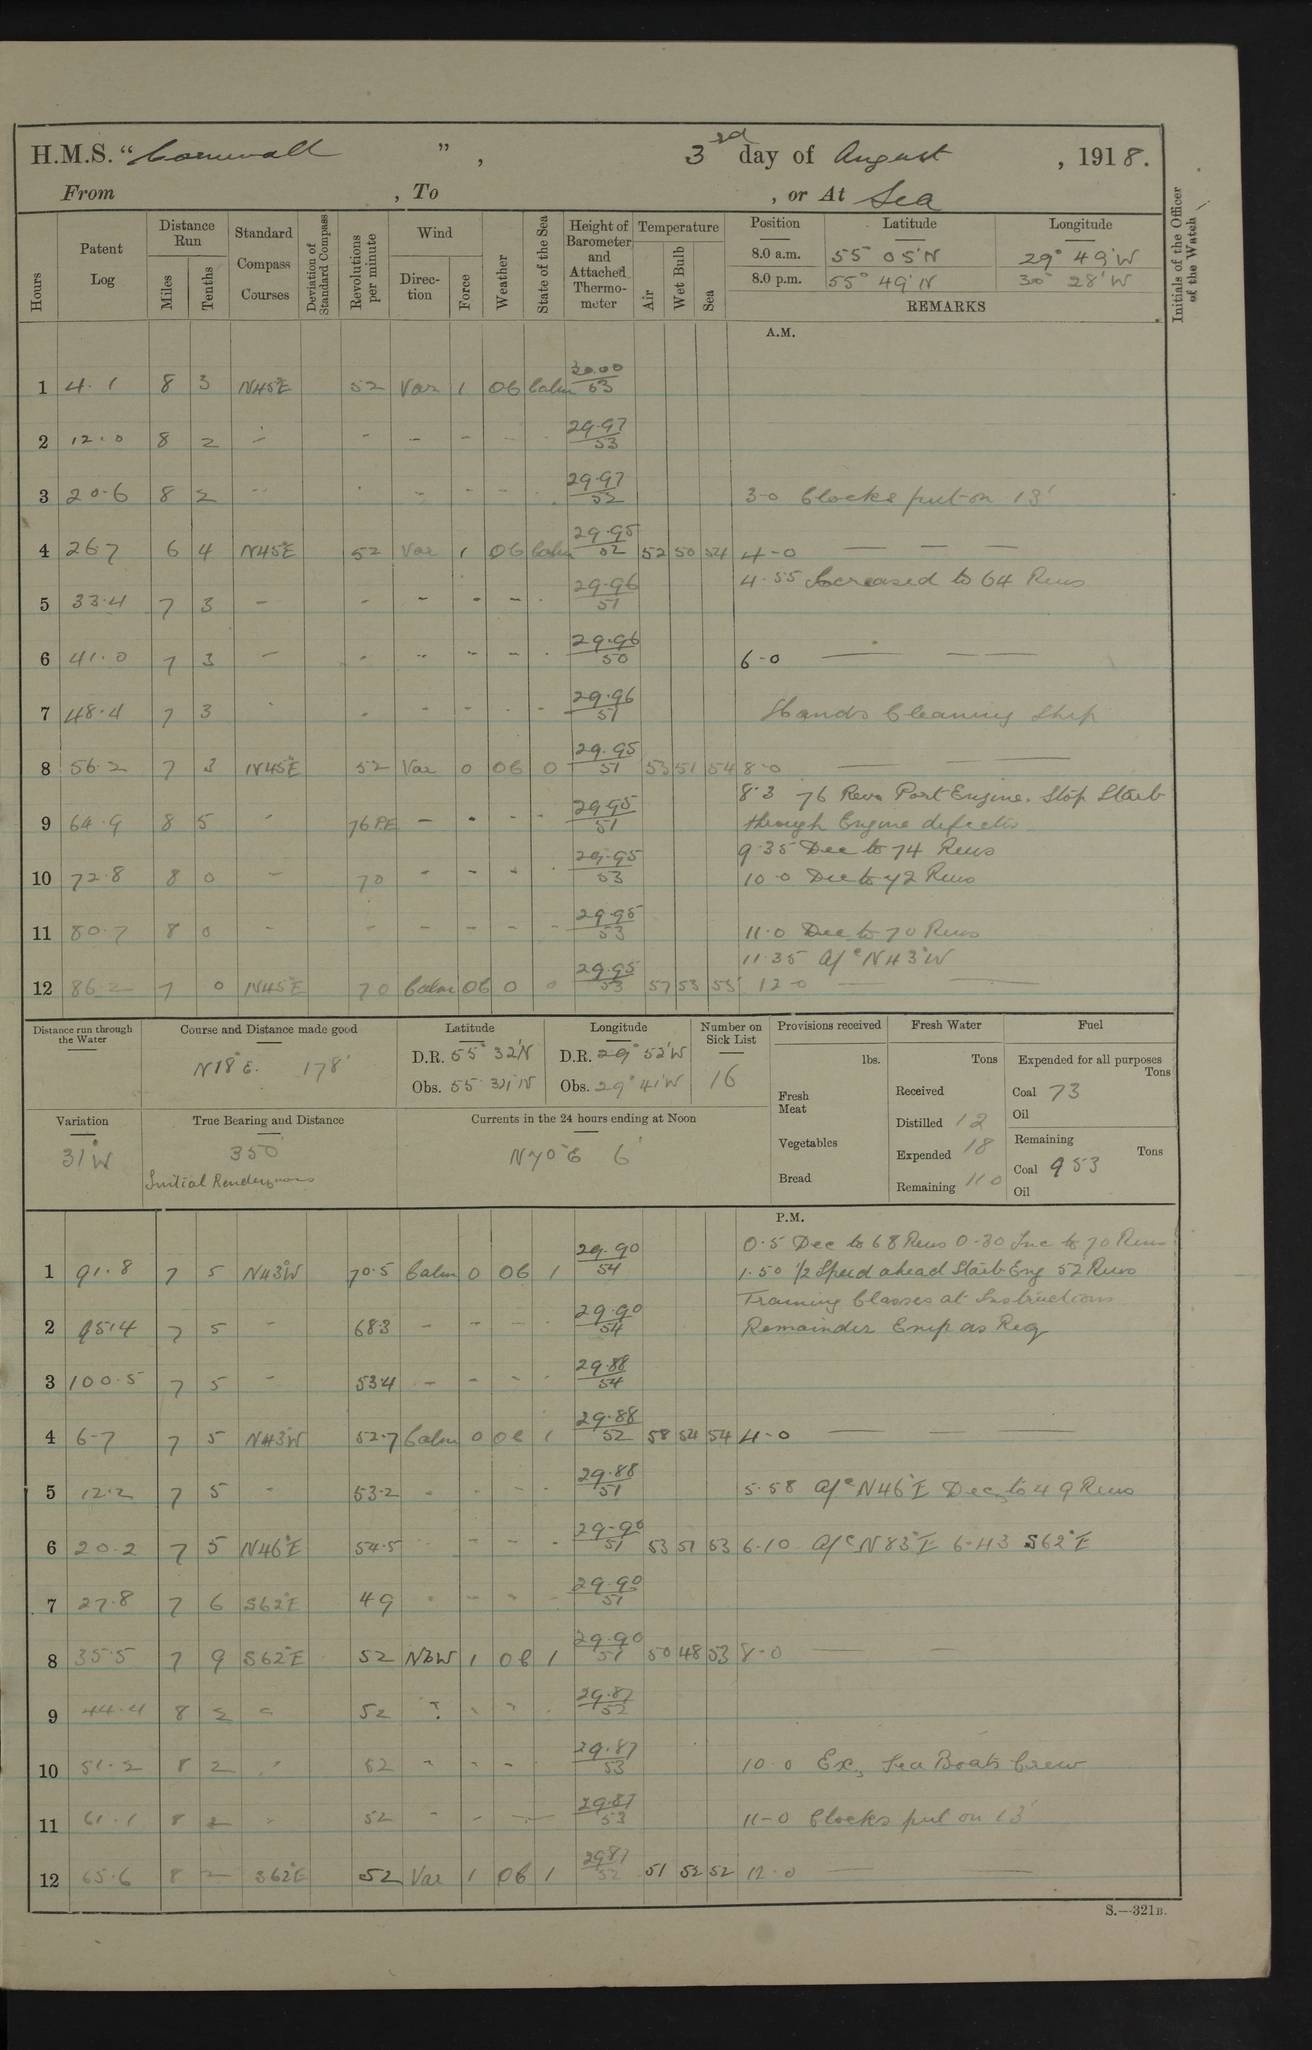 H.M.S. "Cornwall", 3rd day of August, 1918.
From , To , or At Sea
Hours
Patent Log
Distance Run
Miles
Tenths
Standard Compass Courses
Deviation of Standard Compass
Revolutions per minute
Wind
Direction
Force
Weather
State of the Sea
Height of Barometer and Attached Thermometer
Temperature
Air
Wet Bulb
Sea
Position Latitude Longitude
8.0 a.m. 55° 05'N 29° 49'W
8.0 p.m. 55° 49'N 30° 28'W
REMARKS
Initials of the Officer of the Watch
A.M.
1 4.1 8 3 N45°E 52 Var 1 06 Calm 30.00/53
2 12.0 8 2 - - - - 29.97/53
3 20.6 8 2 - - - - 29.97/52 3-0 Clocks put on 13'
4 26 7 6 4 N45°E 52 Var 1 06 Calm 29.95/52 52 50 54 4-0 — — —
4.55 Increased to 64 Revs
5 33.4 7 3 - - - - - 29.96/51
6 41.0 7 3 - - - - - 29.96/50 6-0 — — —
7 48.4 7 3 - - - - - 29.96/51 Hands Cleaning Ship
8 56.2 7 3 N45°E 52 Var 0 06 0 29.95/51 53 51 54 8-0 — —
8.3 76 Revs Port Engine. Stop Starb
9 64.9 8 5 - 76 P.E - - - - 29.95/51 through Engine defects
9.35 Dec to 74 Revs
10 72.8 8 0 - 70 - - - - 29.95/53 10.0 Dec to 72 Revs
11 80.7 8 0 - - - - - - 29.95/53 11.0 Dec to 70 Revs
11.35 A/c N43°W
12 86.2 7 0 N45°E 70 Calm 06 0 0 29.95/53 57 53 55 12-0 — —
Distance run through the Water
Course and Distance made good
N18°E. 178'
Latitude
D.R. 55° 32'N
Obs. 55 N
Longitude
D.R. 29° 52'W
Obs. 29° 41'W
Number on Sick List
16
Provisions received
lbs.
Fresh Meat
Vegetables
Bread
Fresh Water
Tons
Received
Distilled 12
Expended 18
Remaining 110
Fuel
Expended for all purposes
Tons
Coal 73
Oil
Remaining
Tons
Coal 953
Oil
Variation
31°W
True Bearing and Distance
350
Initial Rendezvous
Currents in the 24 hours ending at Noon
N70°E 6'
P.M.
0.5 Dec to 68 Revs 0-30 Inc to 70 Revs
1 91.8 7 5 N43°W 70.5 Calm 0 06 1 29.90/54 1.50 1/2 Speed ahead Starb Eng 52 Revs
Training Classes at Instructions
2 95.4 7 5 - 68.3 - - - - 29.90/54 Remainder Emp as Req
3 100.5 7 5 - 53.4 - - - - 29.88/54
4 6-7 7 5 N43°W 52.7 Calm 0 0c 1 29.88/52 58 54 54 4-0 — — —
5 12.2 7 5 - 53.2 - - - - 29.88/51 5.58 A/c N46°E Dec, to 49 Revs
6 20.2 7 5 N46°E 54.5 - - - 29.90/51 53 51 53 6-10 A/c N83°E 6-43 S62°E
7 27.8 7 6 S62°E 49 - - - - 29.90/51
8 35.5 7 9 S62°E 52 NbW 1 06 1 29.90/51 50 48 53 8-0 — —
9 44.4 8 2 - 52 29.87/52
10 51.2 8 2 - 52 - - - 29.87/53 10.0 Ex, Sea Boats Crew
11 61.1 8 2 - 52 - - - 29.87/53 11-0 Clocks put on 13'
12 65.6 8 — S62°E 52 Var 1 06 1 29.87/52 51 52 52 12.0 — —
S.—321B.